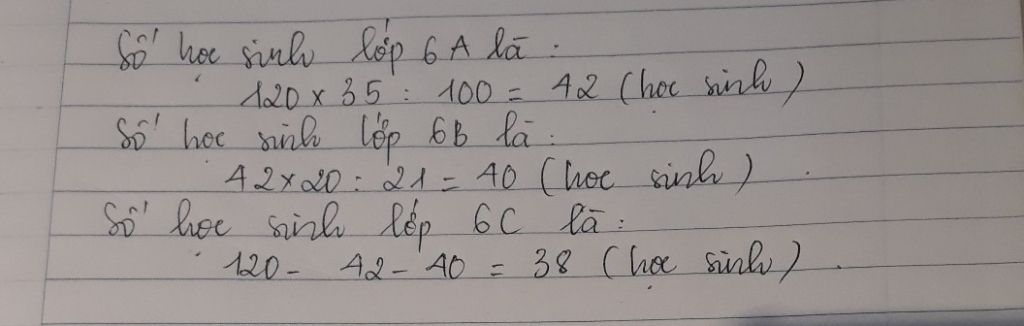 Số học sinh lớp 6A là :
120 x 35 : 100 = 42 (học sinh)
Số học sinh lớp 6B là :
42 x 20 : 21 = 40 (học sinh)
Số học sinh lớp 6C là :
120 - 42 - 40 = 38 (học sinh) .